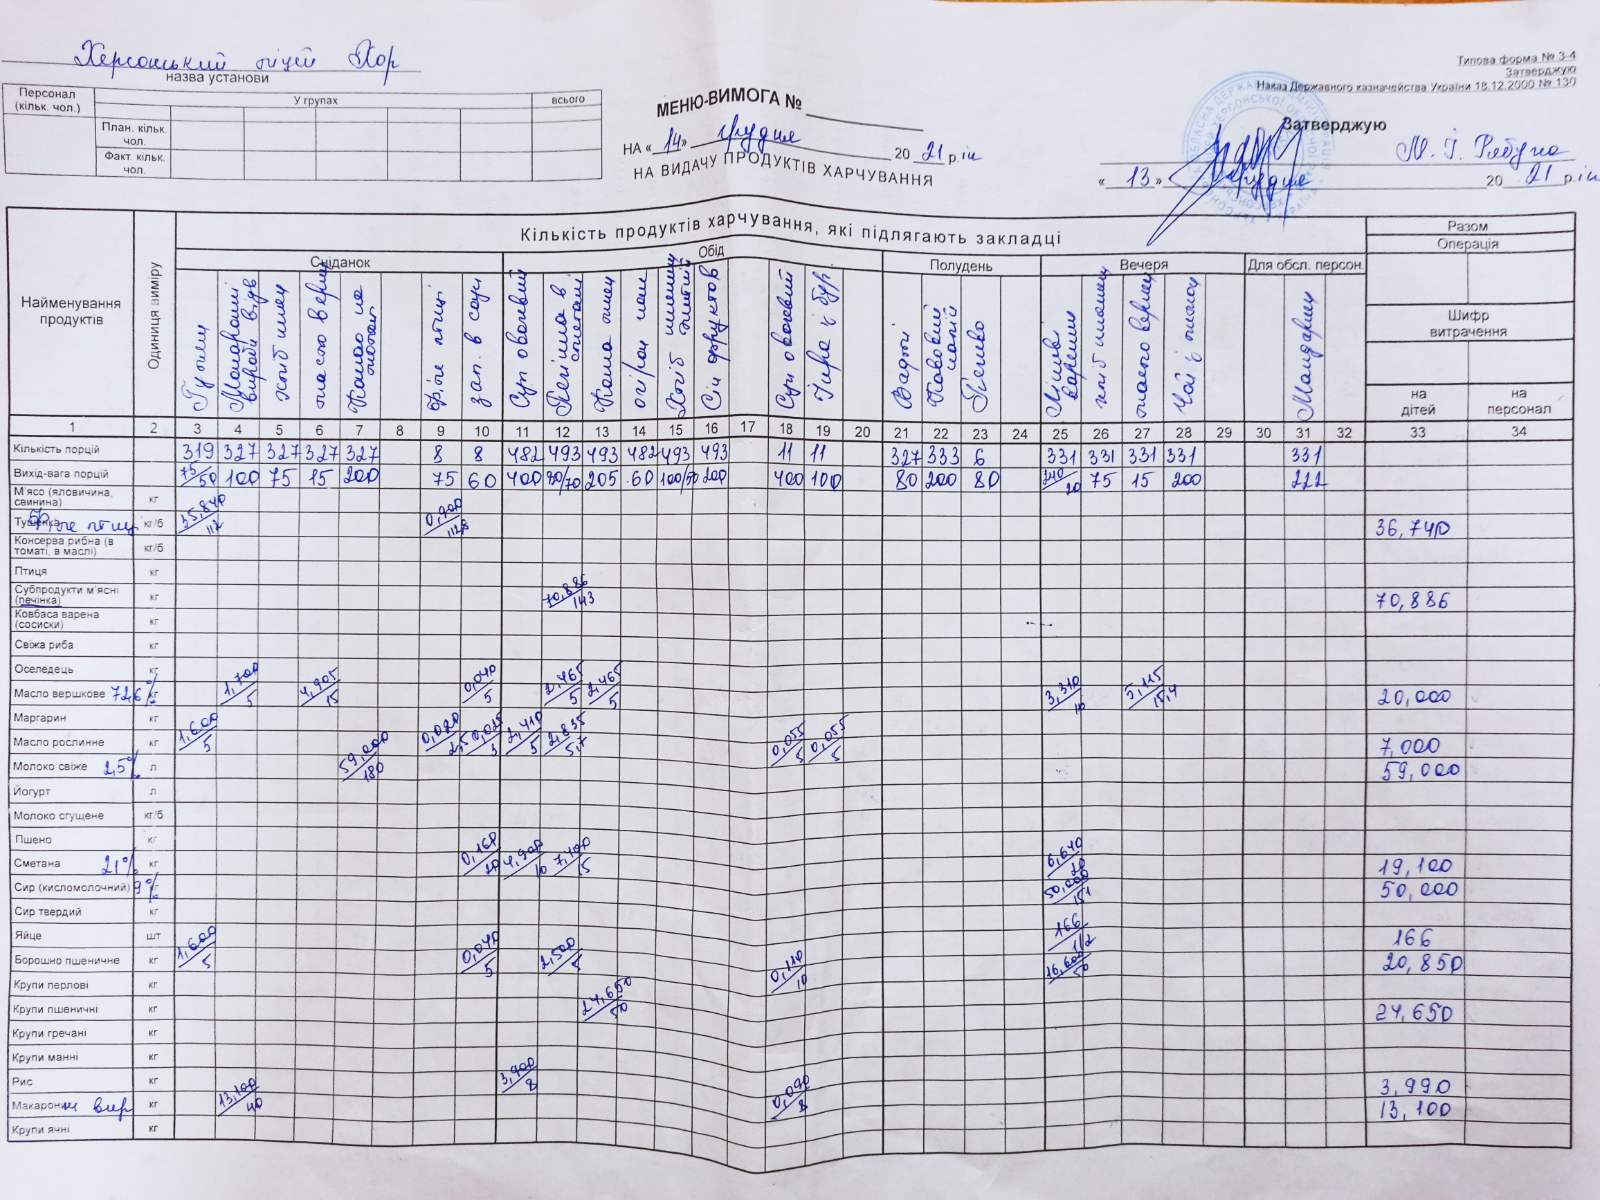 Херсонський ліцей ХОР
назва установи
Типова форма № З-4
Затверджую
Наказ Державного казначейства України 18.12.2000 № 130
Персонал (кільк. чол.) У групах всього
План. кільк. чол.
Факт. кільк. чол.
МЕНЮ-ВИМОГА №
НА «14» грудня 2021 р.
НА ВИДАЧУ ПРОДУКТІВ ХАРЧУВАННЯ
Затверджую
«13» грудня 2021 р.
Найменування продуктів
Одиниця виміру
Кількість продуктів харчування, які підлягають закладці
Разом
Операція
Сніданок Обід Полудень Вечеря Для обсл. персон.
Шифр витрачення
Гуляш
Макаронні вироби відв
хліб пшен
масло верш
Какао на молоці
філе птиці
зап. в соусі
Суп овочевий
Печінка в сметані
Каша пшен
Сік фруктов
Суп овочевий
Вафлі
Печиво
Ліниві вареники
хліб пшен
масло вершк
Чай з
Мандарин
на дітей на персонал
1 2 3 4 5 6 7 8 9 10 11 12 13 14 15 16 17 18 19 20 21 22 23 24 25 26 27 28 29 30 31 32 33 34
Кількість порцій 319 327 327 327 327 8 8 482 493 493 482 493 493 11 11 327 333 6 331 331 331 331 331
Вихід-вага порцій 75/50 100 75 15 200 75 60 400 80/70 205 60 100/50 200 400 100 80 200 80 240/20 75 15 200 222
М'ясо (яловичина, свинина) кг
Тушонка Філе птиці кг/б 35,840/112 0,900/112,8 36,740
Консерва рибна (в томаті, в маслі) кг/б
Птиця кг
Субпродукти м'ясні (печінка) кг 70,886/143 70,886
Ковбаса варена (сосиски) кг
Свіжа риба кг
Оселедець кг
Масло вершкове 72,6% кг 1,700/5 4,905/15 0,040/5 2,465/5 2,465/5 3,310/10 5,115/15,4 20,000
Маргарин кг
Масло рослинне кг 1,600/5 0,020/2,5 0,025/3 2,410/5 2,835/5,7 0,055/5 0,055/5 7,000
Молоко свіже 2,5% л 59,000/180 59,000
Йогурт л
Молоко сгущене кг/б
Пшено кг
Сметана 21% кг 0,160/20 4,900/10 7,400/15 6,640/20 19,100
Сир (кисломолочний) 9% кг 50,000/151 50,000
Сир твердий кг
Яйце шт 166/1/2 166
Борошно пшеничне кг 1,600/5 0,040/5 2,500/5 0,110/10 16,600/50 20,850
Крупи перлові кг
Крупи пшеничні кг 24,650/50 24,650
Крупи гречані кг
Крупи манні кг
Рис кг 3,900/8 0,090/8 3,990
Макаронни вир кг 13,100/40 13,100
Крупи ячні кг